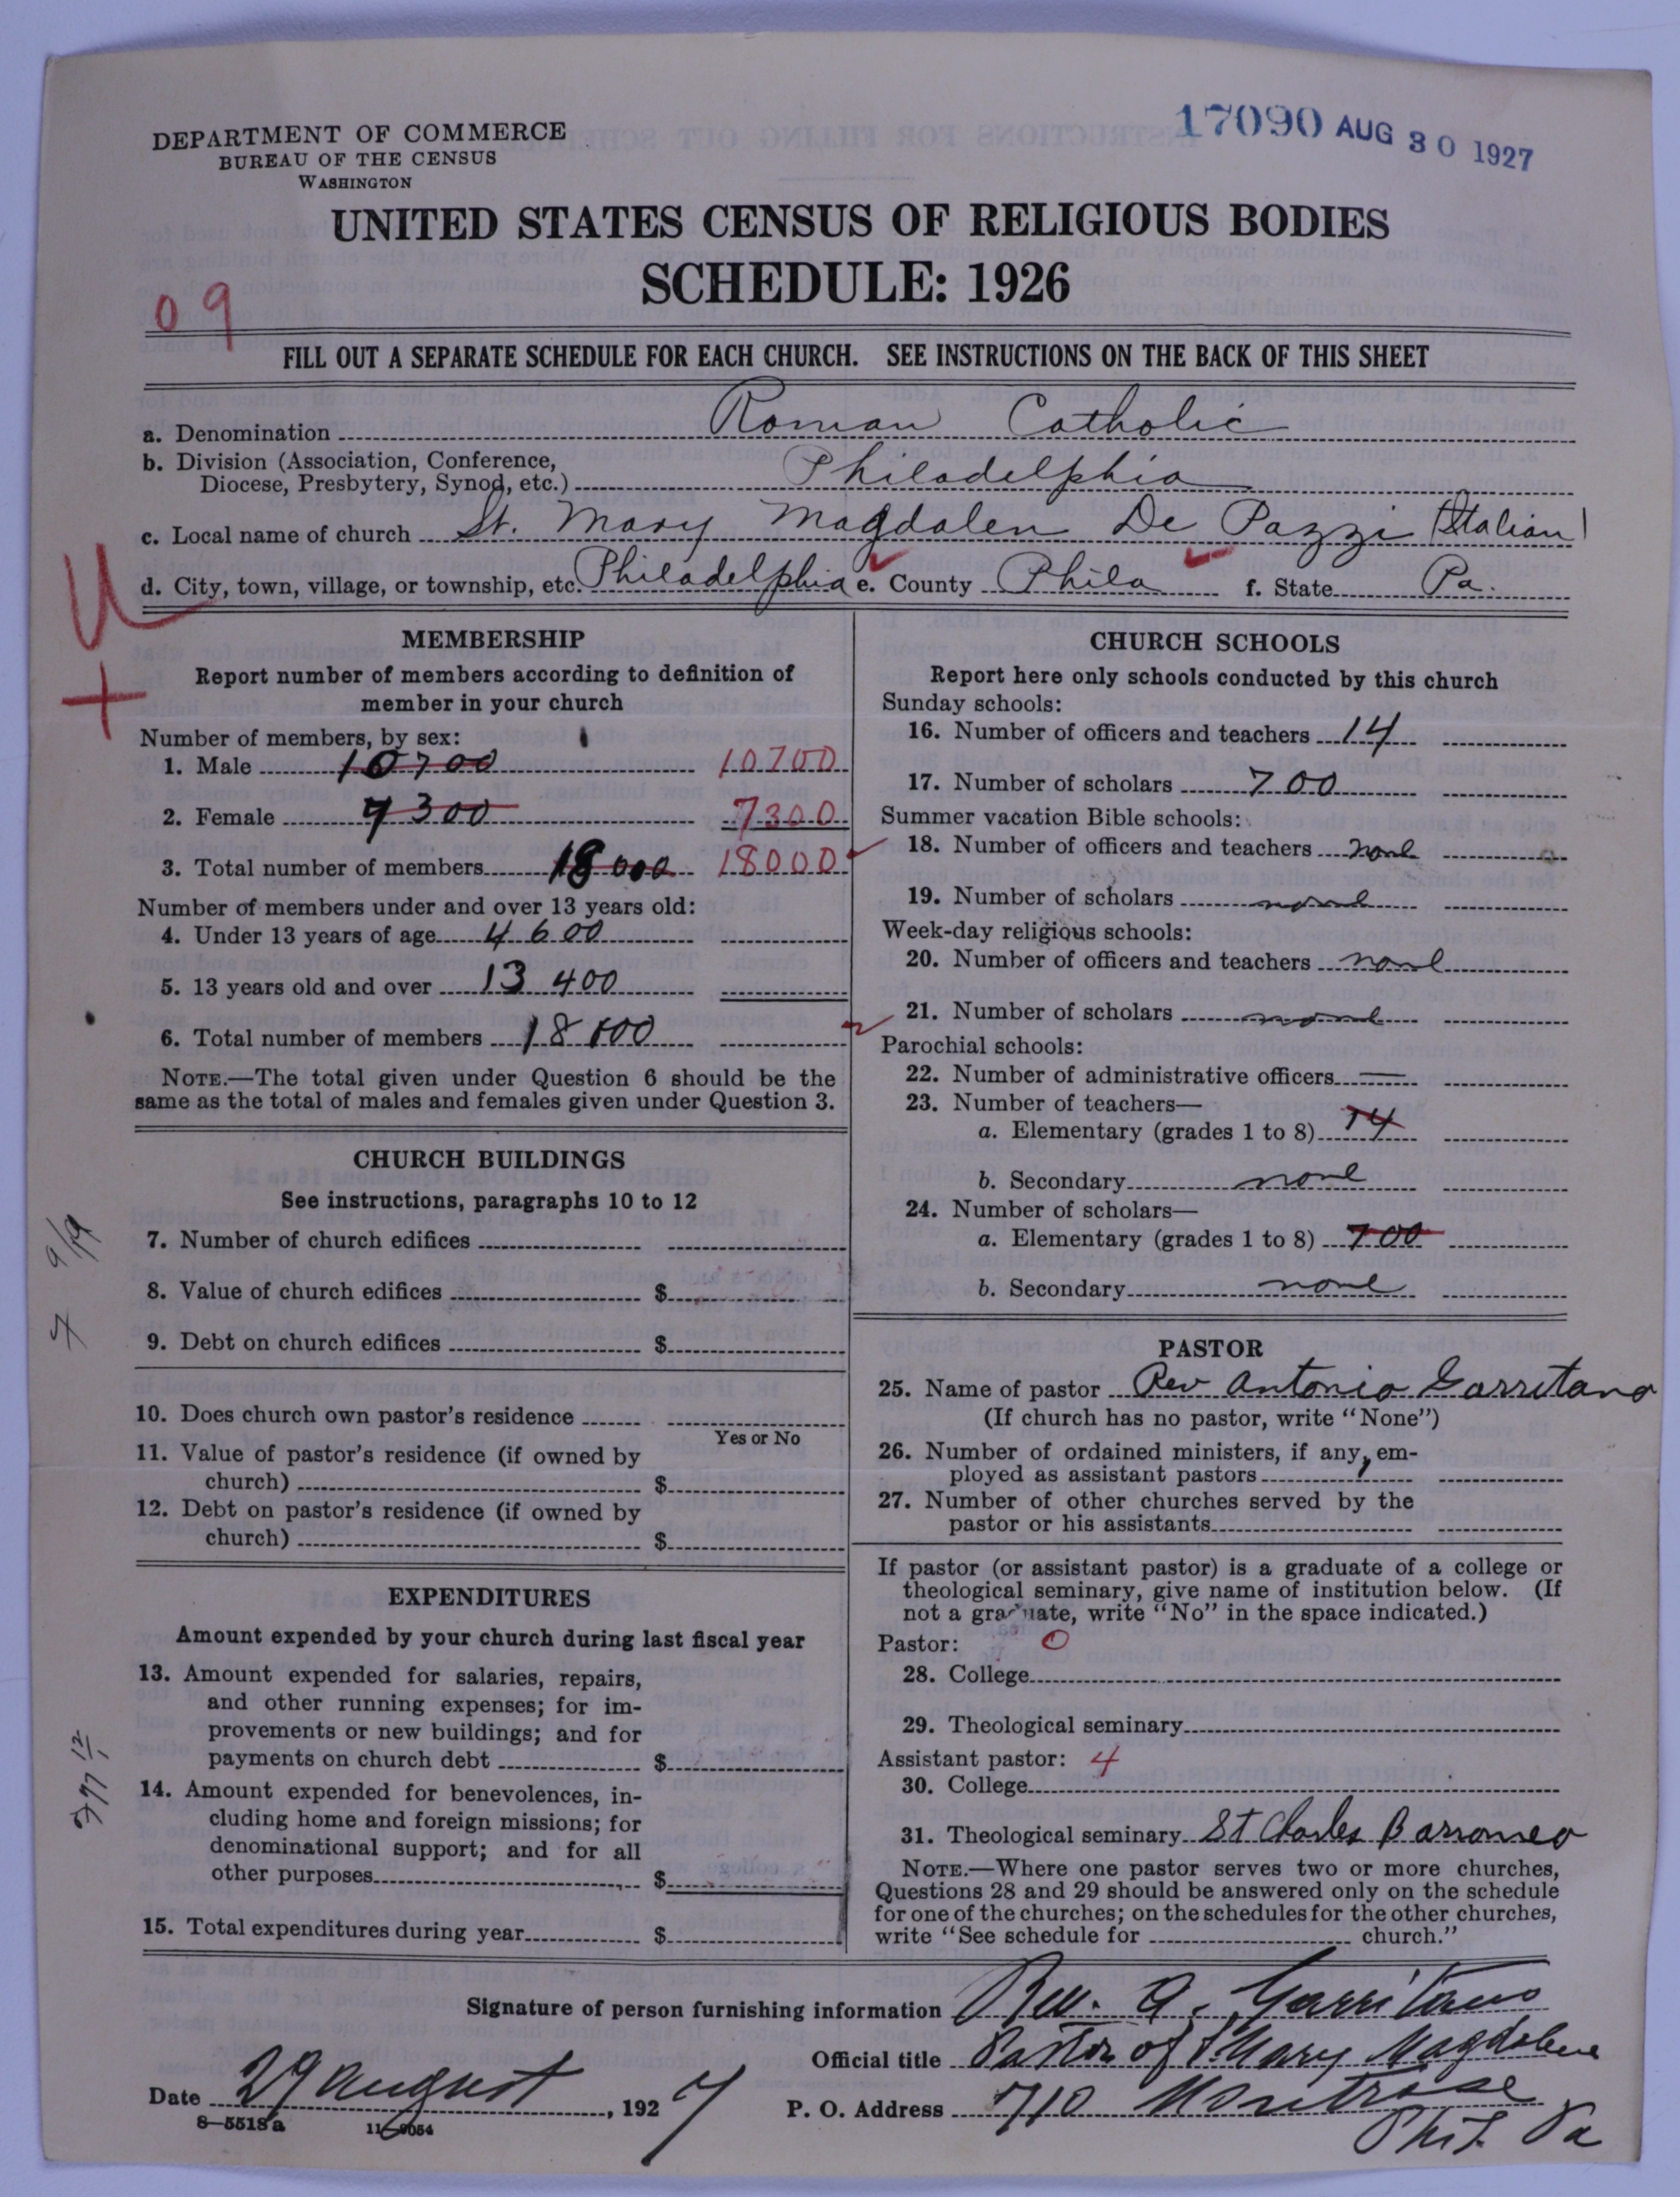 17090 AUG 30 1927
DEPARTMENT OF COMMERCE
BUREAU OF THE CENSUS
WASHINGTON
UNITED STATES CENSUS OF RELIGIOUS BODIES
SCHEDULE: 1926
09
FILL OUT A SEPARATE SCHEDULE FOR EACH CHURCH. SEE INSTRUCTIONS ON THE BACK OF THIS SHEET
a. Denomination Roman Catholic
b. Division (Association, Conference,
Diocese, Presbytery, Synod, etc.) Philadelphia
c. Local name of church St. Mary Magdalen De Pazzi (Italian)
d. City, town, village, or township, etc. Philadelphia e. County Phila f. State Pa.
U
+
MEMBERSHIP
Report number of members according to definition of
member in your church
Number of members, by sex:
1. Male 10700 10700
2. Female 7300 7300
3. Total number of members 18000 18000
Number of members under and over 13 years old:
4. Under 13 years of age 4600
5. 13 years old and over 13400
6. Total number of members 18000
NOTE.—The total given under Question 6 should be the
same as the total of males and females given under Question 3.
CHURCH BUILDINGS
See instructions, paragraphs 10 to 12
7. Number of church edifices
8. Value of church edifices $
9. Debt on church edifices $
10. Does church own pastor's residence
Yes or No
11. Value of pastor's residence (if owned by
church) $
12. Debt on pastor's residence (if owned by
church) $
EXPENDITURES
Amount expended by your church during last fiscal year
13. Amount expended for salaries, repairs,
and other running expenses; for im-
provements or new buildings; and for
payments on church debt $
14. Amount expended for benevolences, in-
cluding home and foreign missions; for
denominational support; and for all
other purposes $
15. Total expenditures during year $
CHURCH SCHOOLS
Report here only schools conducted by this church
Sunday schools:
16. Number of officers and teachers 14
17. Number of scholars 700
Summer vacation Bible schools:
18. Number of officers and teachers none
19. Number of scholars none
Week-day religious schools:
20. Number of officers and teachers none
21. Number of scholars none
Parochial schools:
22. Number of administrative officers —
23. Number of teachers—
a. Elementary (grades 1 to 8) 14
b. Secondary none
24. Number of scholars—
a. Elementary (grades 1 to 8) 700
b. Secondary none
PASTOR
25. Name of pastor Rev Antonio Garritano
(If church has no pastor, write "None")
26. Number of ordained ministers, if any, em-
ployed as assistant pastors 1
27. Number of other churches served by the
pastor or his assistants
If pastor (or assistant pastor) is a graduate of a college or
theological seminary, give name of institution below. (If
not a graduate, write "No" in the space indicated.)
Pastor: 0
28. College
29. Theological seminary
Assistant pastor: 4
30. College
31. Theological seminary St Charles Barromeo
NOTE.—Where one pastor serves two or more churches,
Questions 28 and 29 should be answered only on the schedule
for one of the churches; on the schedules for the other churches,
write "See schedule for church."
Signature of person furnishing information Rev. A. Garritano
Official title Pastor of S. Mary Magdalene
Date 29 August, 1927 P. O. Address 710 Montrose
Phil. Pa
8—5518a 11—9054